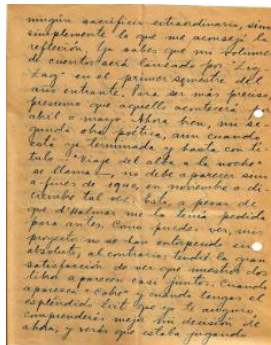 ningún sacrificio extraordinario, sino
simplemente lo que me aconsejó la
reflexión. Ya sabes que mi volumen
de cuentos será lanzado por "Zig
Zag" en el primer semestre del
año entrante. Para ser más preciso,
presumo que aquello acontecerá en
abril o mayo. Ahora bien, mi se-
gunda obra poética, aun cuando
está ya terminada y hasta con tí-
tulo — "Viaje del alba a la noche"
se llama —, no debe aparecer sino
a fines de 1940, en noviembre o di-
ciembre tal vez. Esto, a pesar de
que d'Halmar me la tenía pedida
para antes. Como puedes ver, mis
proyectos no se han entorpecido en
absoluto, al contrario: tendré la gran
satisfacción de ver que nuestros dos
libros aparecen casi juntos. Cuando
aparezca "Cobre" y cuando tengas el
espléndido éxito que yo te auguro,
comprenderás mejor mi decisión de
ahora, y verás que estaba jugando